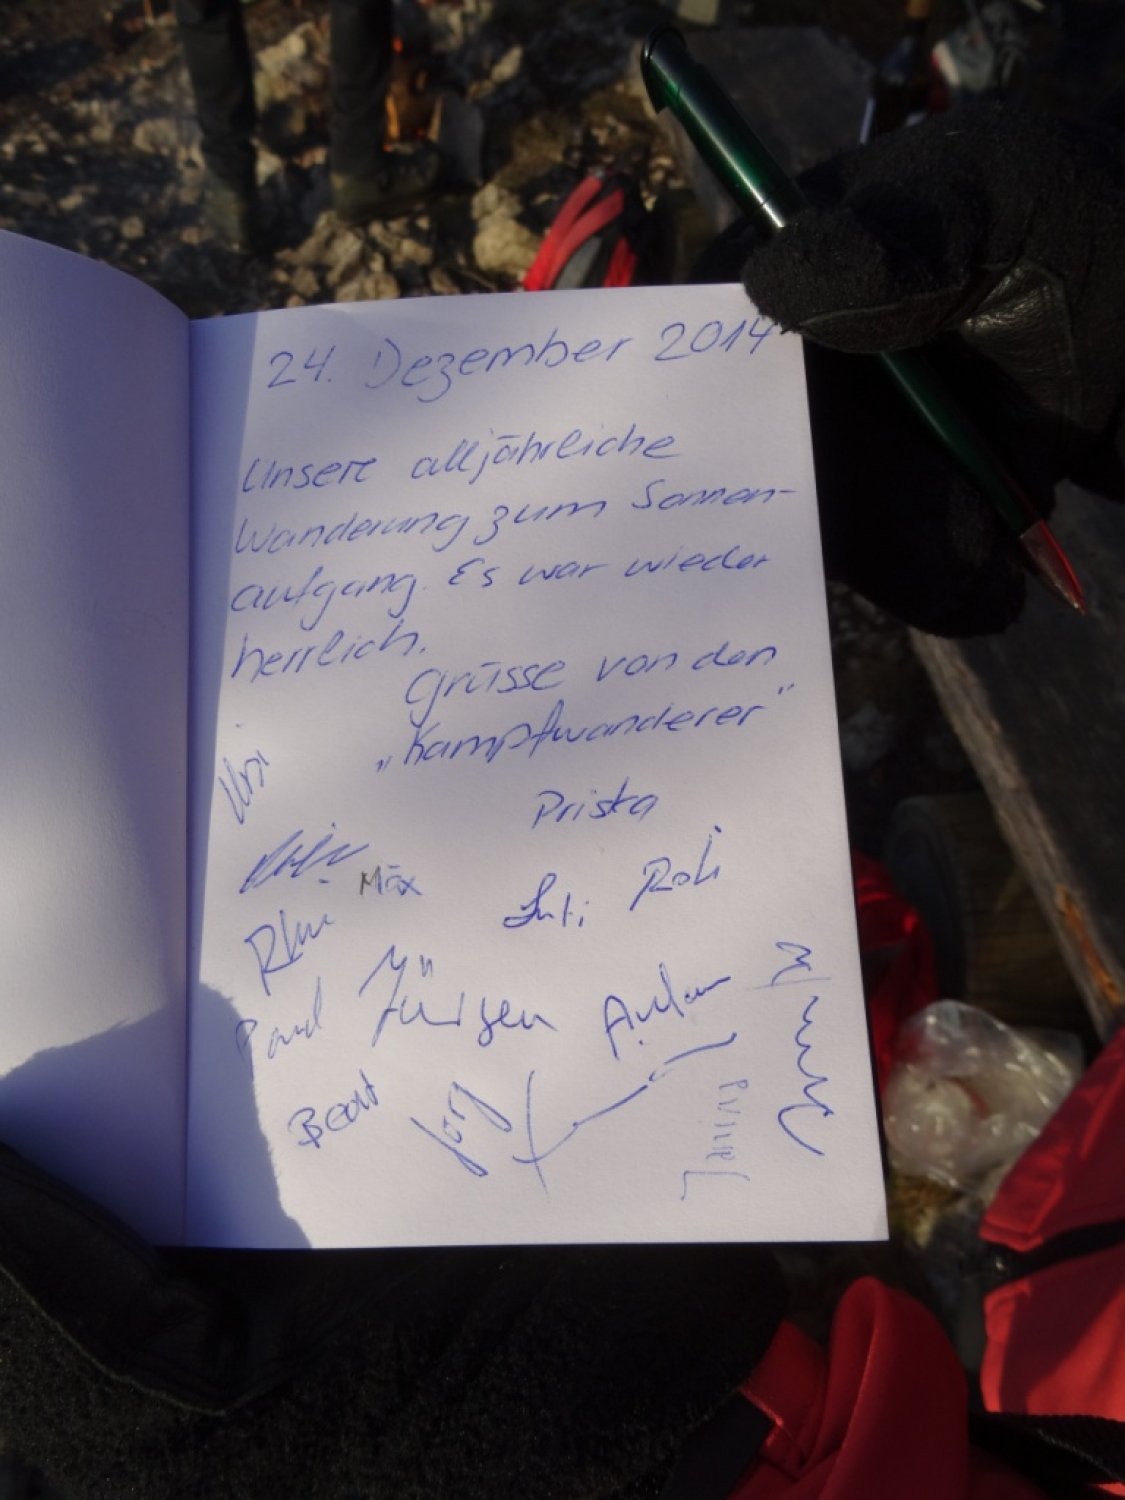 24. Dezember 2014
Unsere alljährliche
Wanderung zum Sonnen-
aufgang. Es war wieder
herrlich.
Grüsse von den
„Kampfwanderer"
Ursi
Priska
Mäx
Roli
Jürgen
Beat
Jörg